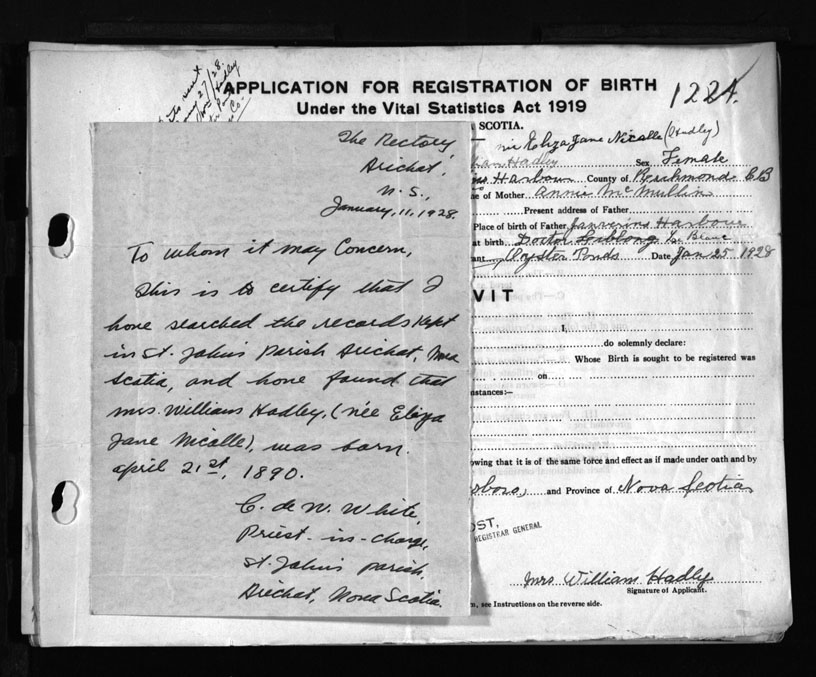 APPLICATION FOR REGISTRATION OF BIRTH
1224.
Under the Vital Statistics Act 1919
SCOTIA.
The Rectory
Arichat,
N.S.,
January, 11, 1928.
To whom it may Concern,
This is to certify that I
have searched the records kept
in St. John's Parish Arichat, Nova
Scotia, and have found that
Mrs. William Hadley, (née Eliza
Jane Nicolle), was born
April 21st, 1890.
C. de W. White,
Priest-in-charge,
St. John's parish,
Arichat, Nova Scotia.
née Eliza Jane Nicolle (Hadley)
Hadley Sex Female
Harbour County of Richmond CB
of Mother Annie McMullin
Present address of Father
Place of birth of Father Janverins Harbour
at birth Doctor LeBlanc
Oyster Ponds Date Jan 25 1928
VIT
I,
do solemnly declare:
Whose Birth is sought to be registered was
on
stances:—
owing that it is of the same force and effect as if made under oath and by
sboro, and Province of Nova Scotia
OST,
REGISTRAR GENERAL
Mrs William Hadley
Signature of Applicant.
see Instructions on the reverse side.